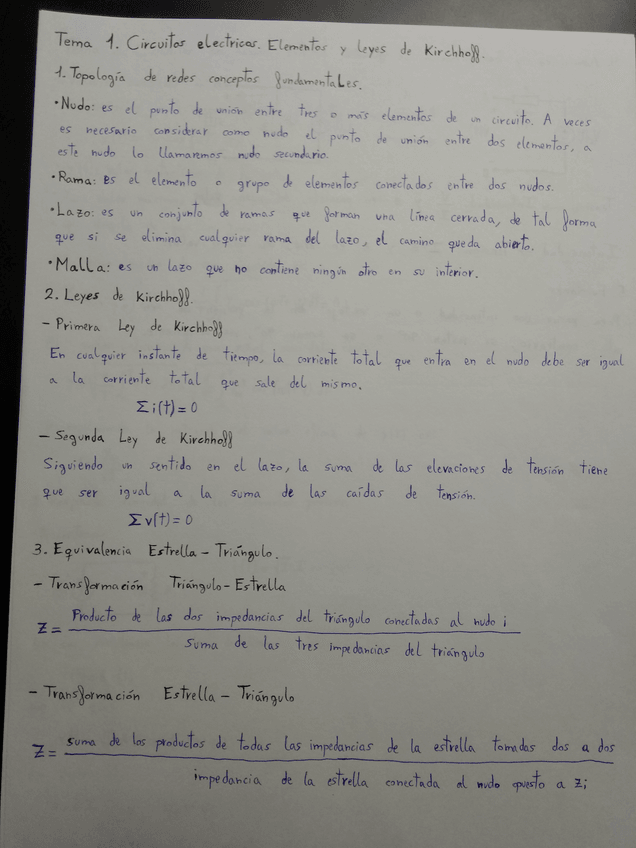 Tema 1. Circuitos electricos. Elementos y Leyes de Kirchhoff.
1. Topología de redes conceptos fundamentales.
•Nudo: es el punto de unión entre tres o más elementos de un circuito. A veces
es necesario considerar como nudo el punto de unión entre dos elementos, a
este nudo lo llamaremos nudo secundario.
•Rama: es el elemento o grupo de elementos conectados entre dos nudos.
•Lazo: es un conjunto de ramas que forman una línea cerrada, de tal forma
que si se elimina cualquier rama del lazo, el camino queda abierto.
•Malla: es un lazo que no contiene ningún otro en su interior.
2. Leyes de Kirchhoff.
- Primera Ley de Kirchhoff
En cualquier instante de tiempo, la corriente total que entra en el nudo debe ser igual
a la corriente total que sale del mismo.
Σi(t)=0
- Segunda Ley de Kirchhoff
Siguiendo un sentido en el lazo, la suma de las elevaciones de tensión tiene
que ser igual a la suma de las caídas de tensión.
Σv(t)=0
3. Equivalencia Estrella - Triángulo.
- Transformación Triángulo - Estrella
Z = Producto de las dos impedancias del triángulo conectadas al nudo i
suma de las tres impedancias del triángulo
- Transformación Estrella - Triángulo
Z = suma de los productos de todas las impedancias de la estrella tomadas dos a dos
impedancia de la estrella conectada al nudo opuesto a Zi